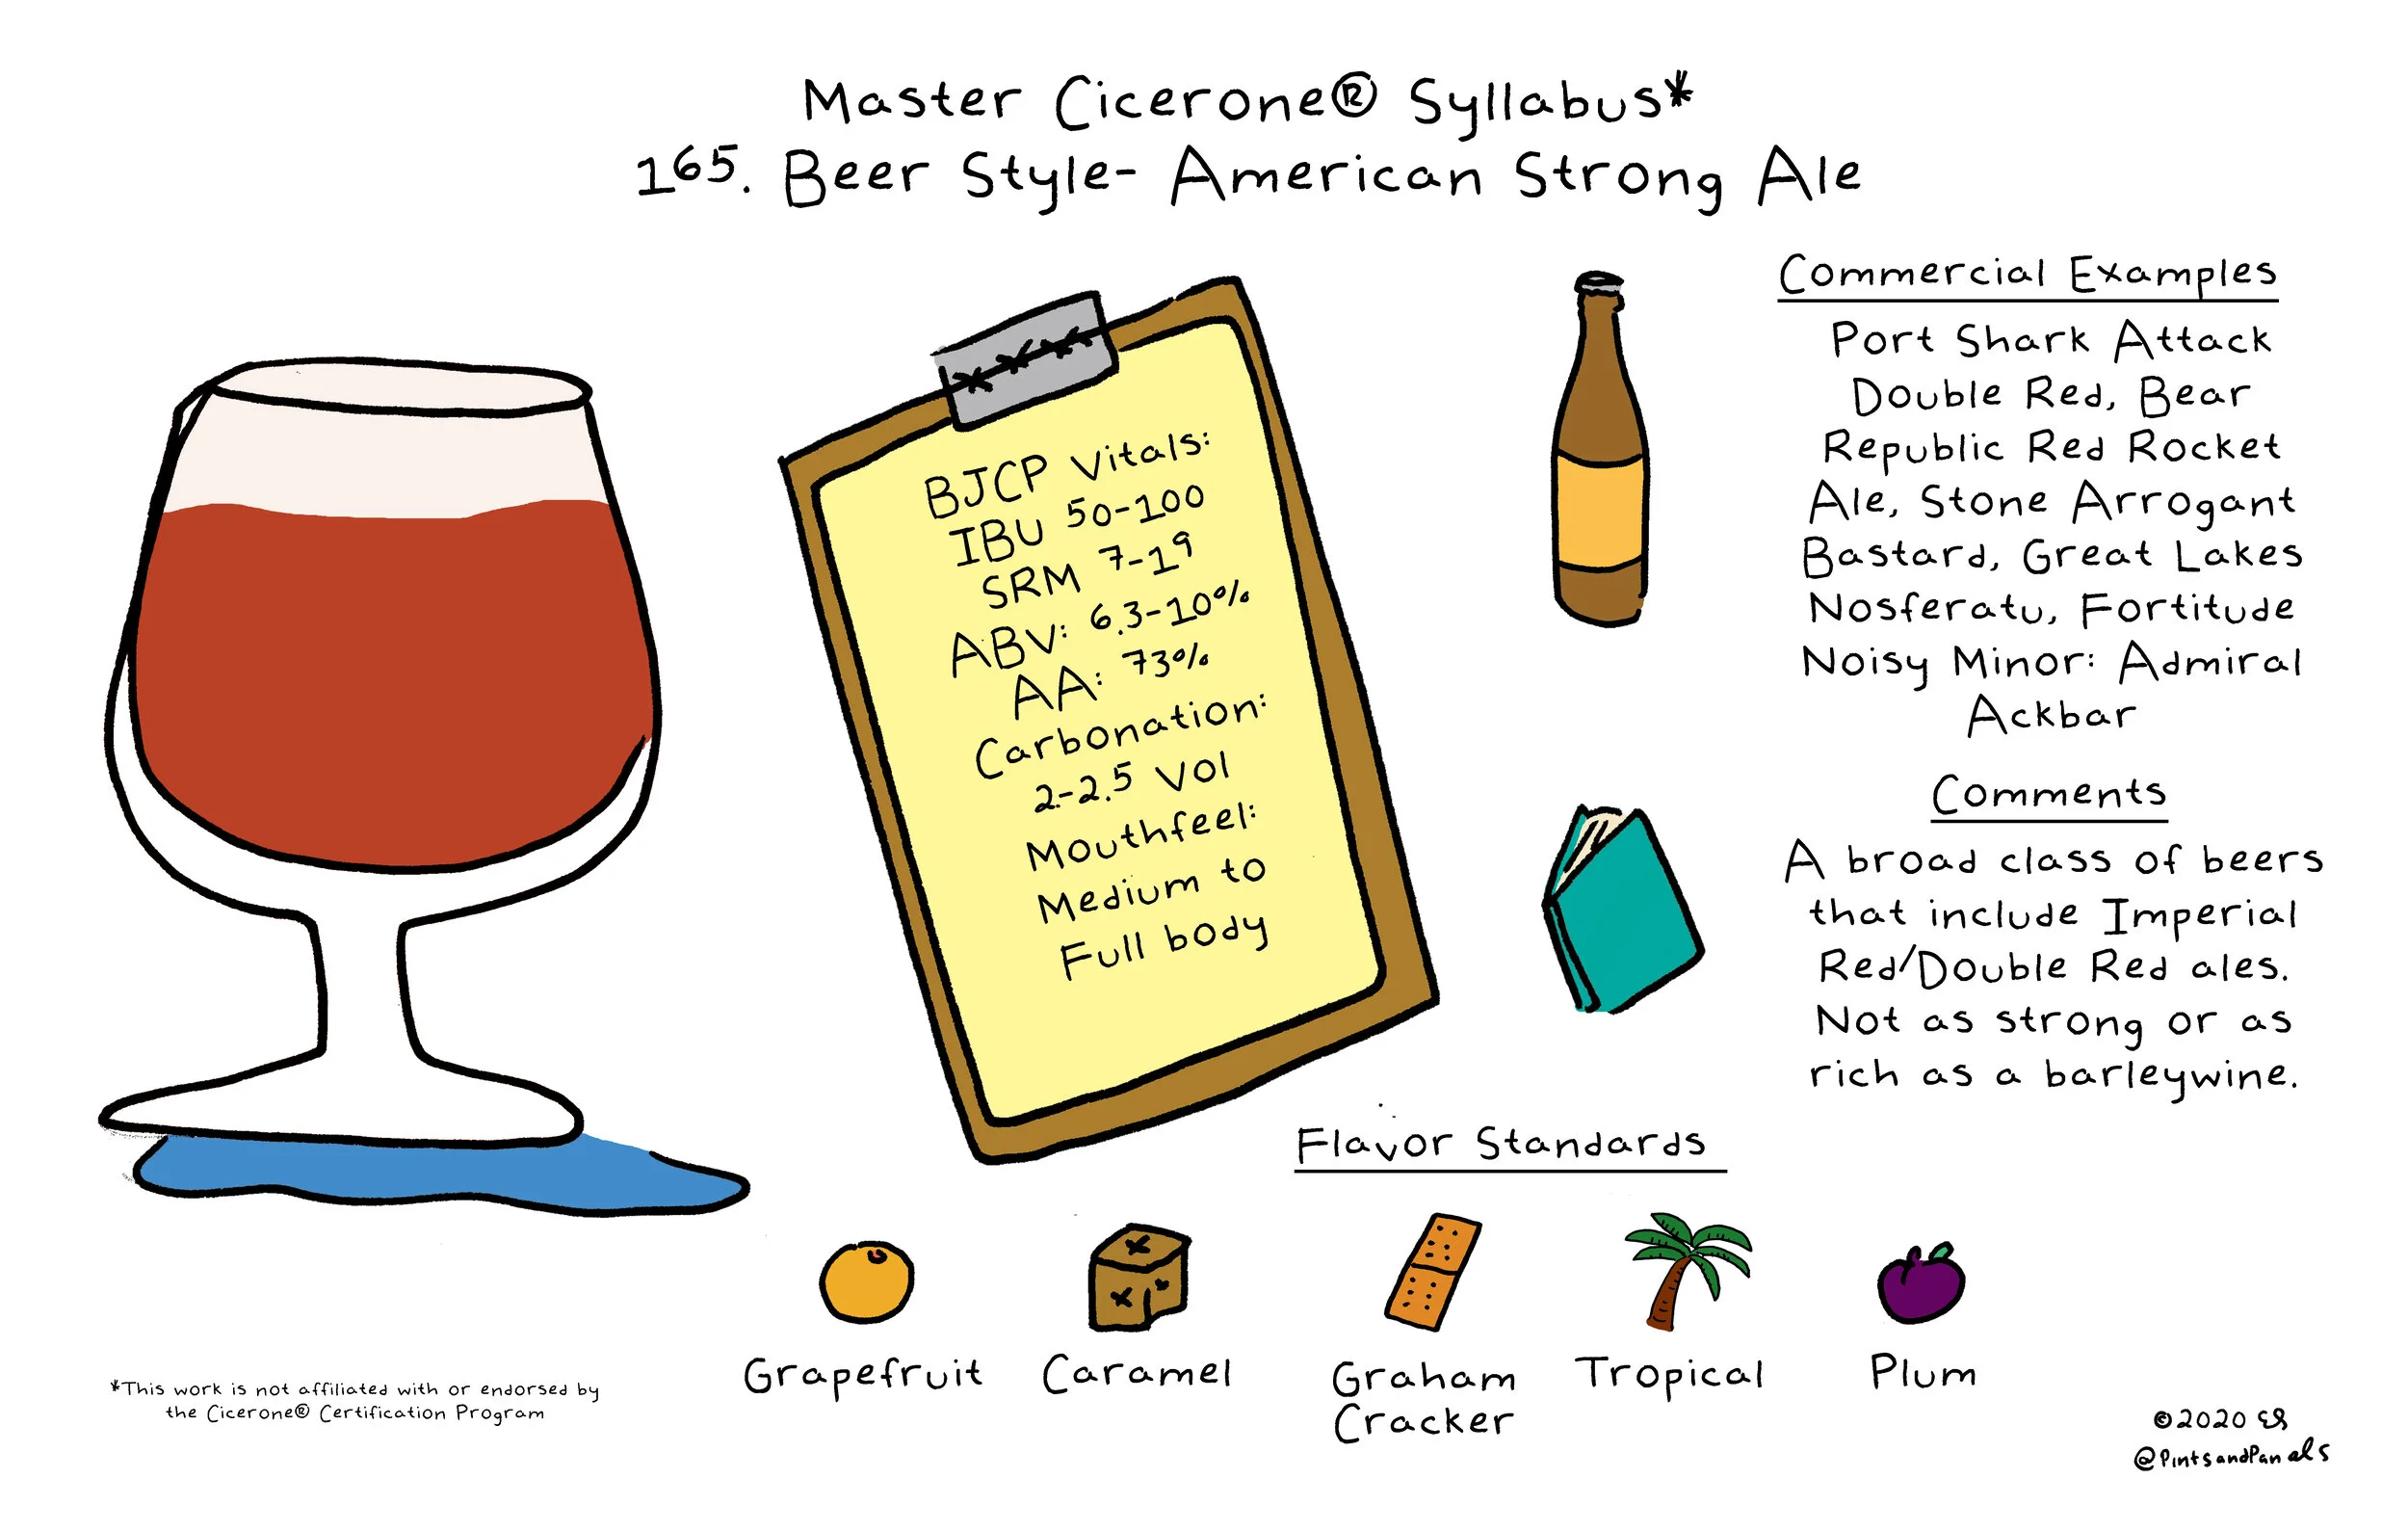 Master Cicerone® Syllabus*
165. Beer Style- American Strong Ale
BJCP Vitals:
IBU 50-100
SRM 7-19
ABV: 6.3-10%
AA: 73%
Carbonation:
2-2.5 Vol
Mouthfeel:
Medium to
Full body
Commercial Examples
Port Shark Attack
Double Red, Bear
Republic Red Rocket
Ale, Stone Arrogant
Bastard, Great Lakes
Nosferatu, Fortitude
Noisy Minor: Admiral
Ackbar
Comments
A broad class of beers
that include Imperial
Red/Double Red ales.
Not as strong or as
rich as a barleywine.
Flavor Standards
Grapefruit
Caramel
Graham
Cracker
Tropical
Plum
*This work is not affiliated with or endorsed by
the Cicerone® Certification Program
©2020 ES
@PintsandPanels